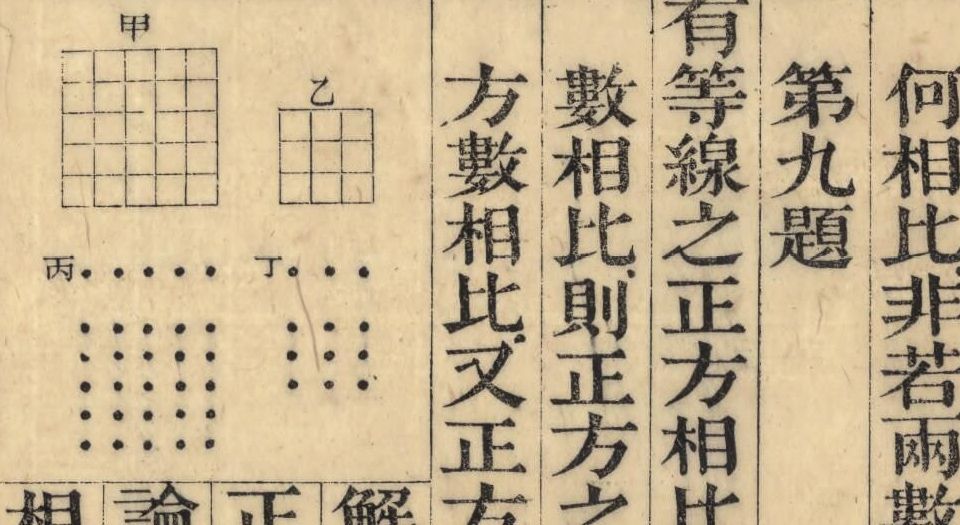 何相比、非若兩數
第九題
有等線之正方相比
數相比、則正方之
方數相比、又正方
甲
乙
丙
丁
解
正
論
相